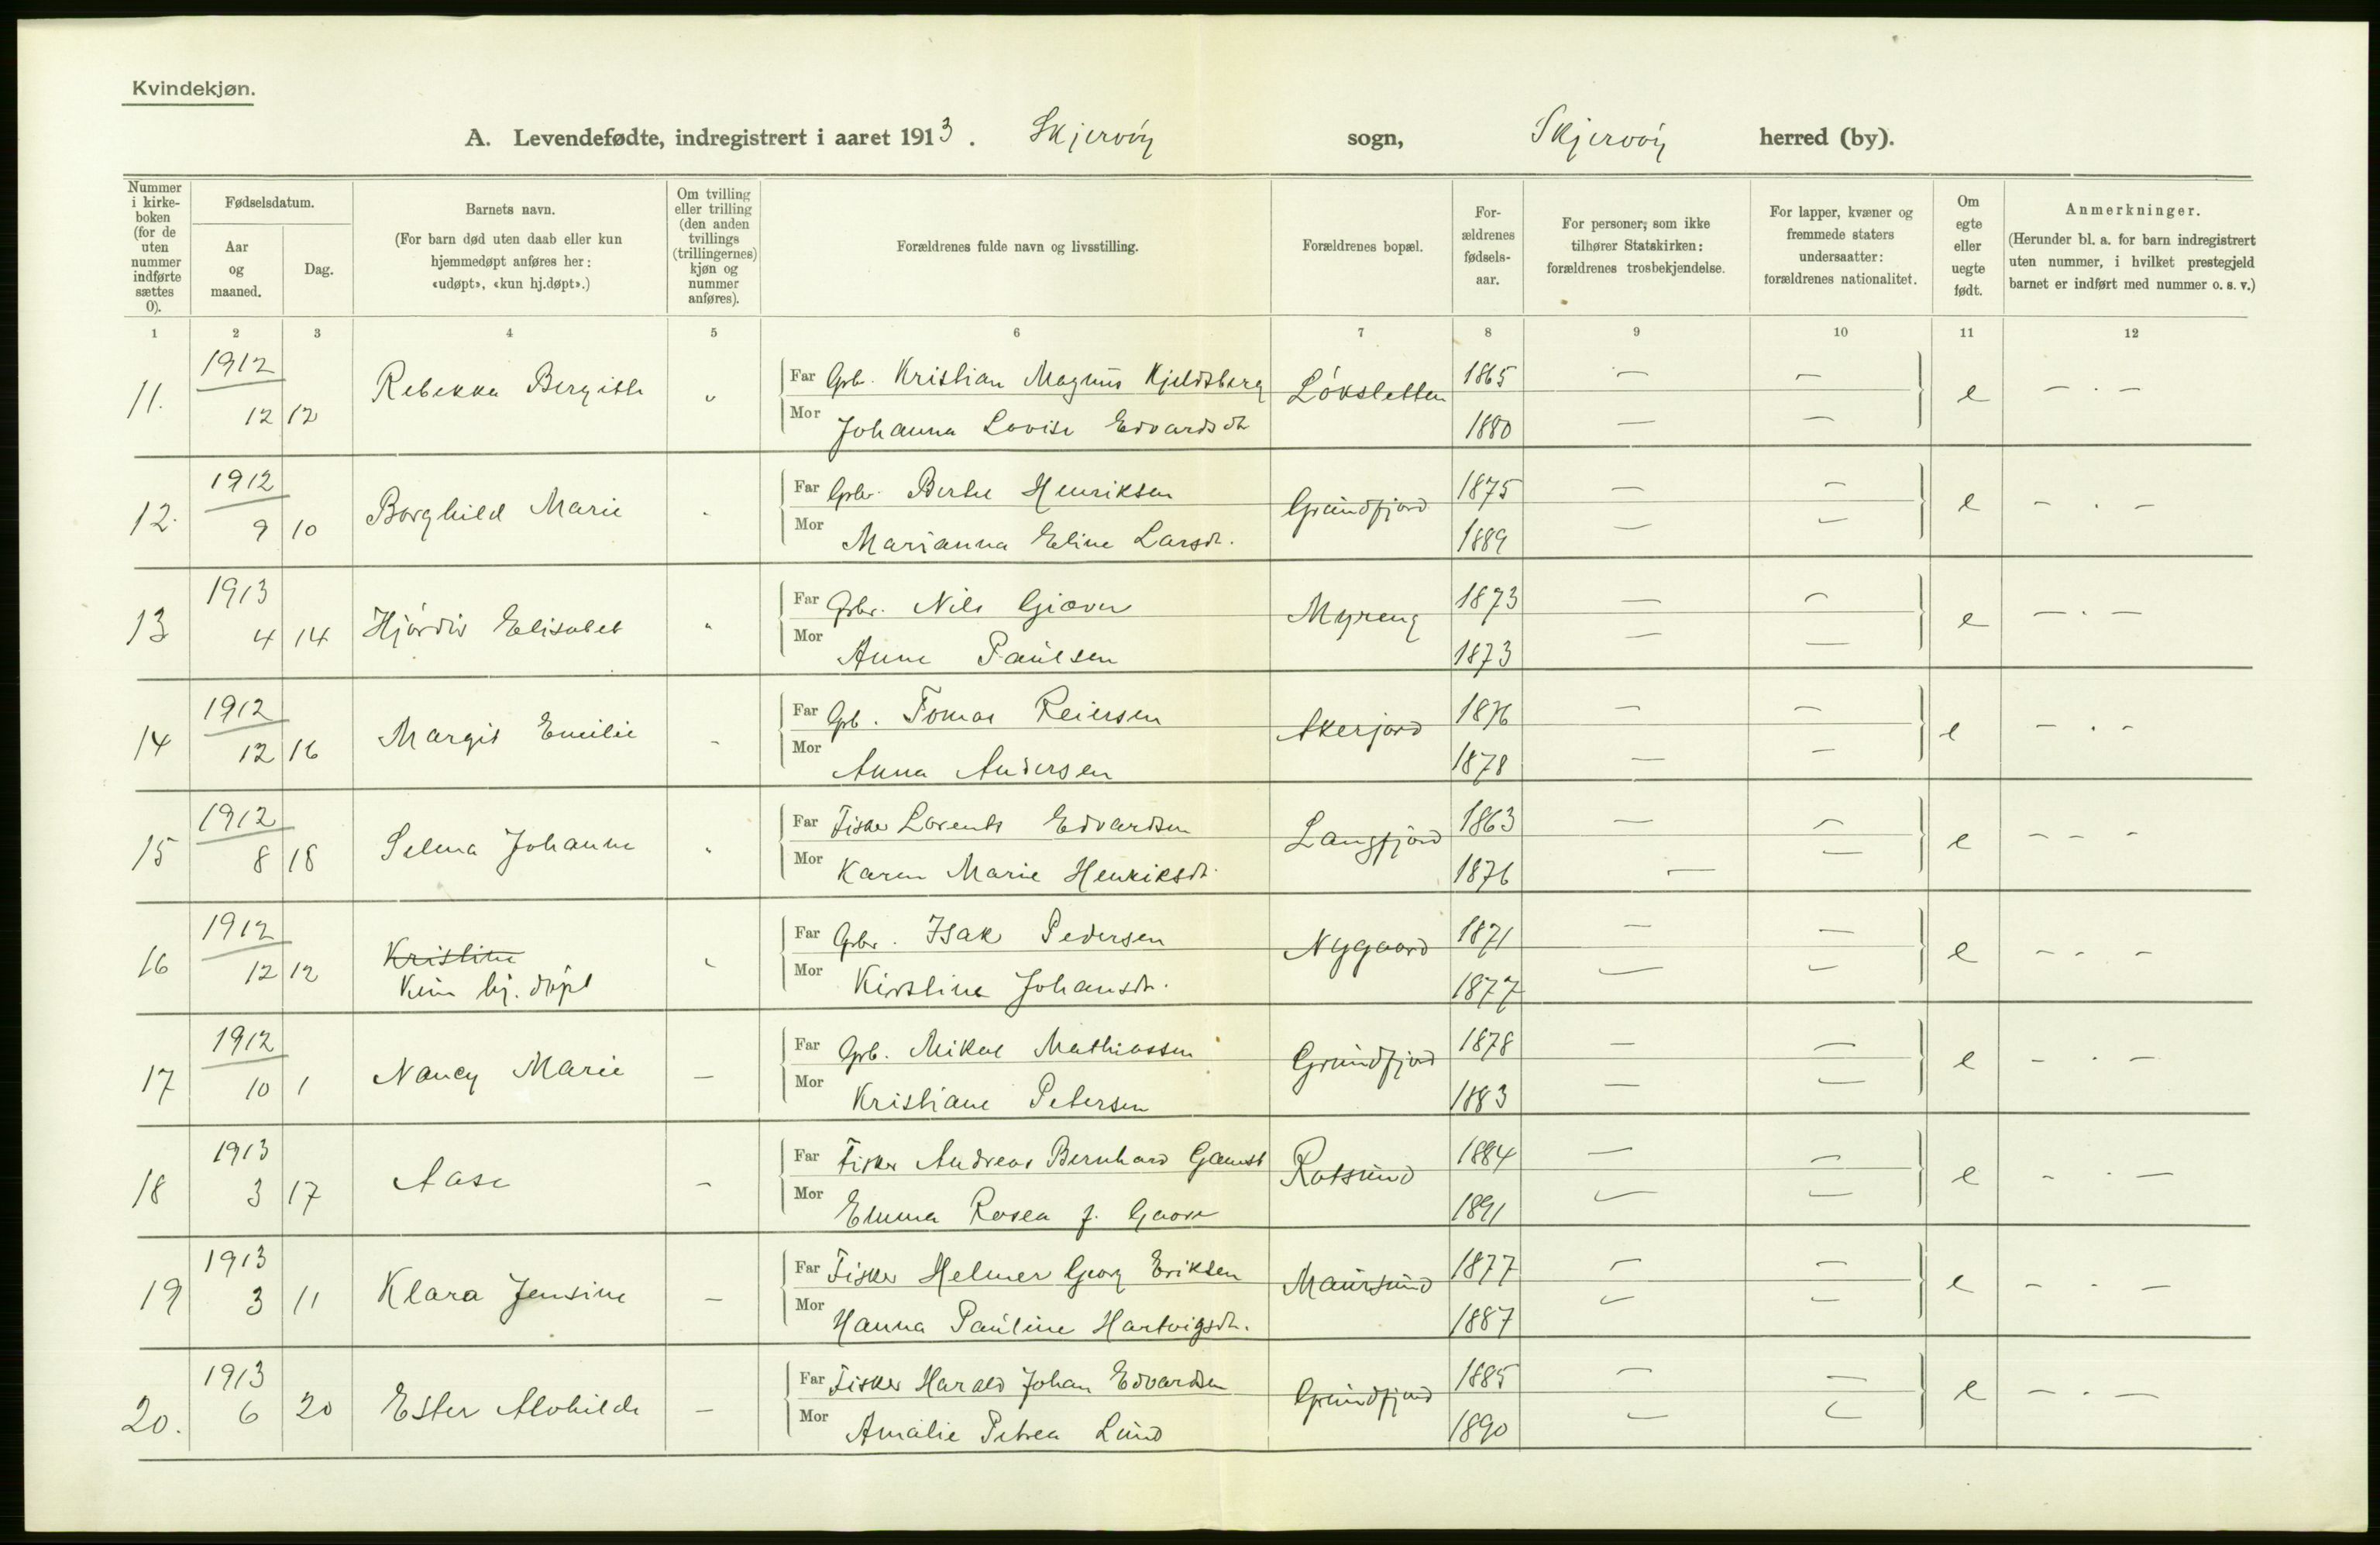 Kvindekjøn.
A. Levendefødte, indregistrert i aaret 1913. Skjervöy sogn, Skjervöy herred (by).
Nummer i kirkeboken (for de uten nummer indførte sættes 0).
Fødselsdatum.
Aar og maaned.
Dag.
Barnets navn.
(For barn død uten daab eller kun hjemmedøpt anføres her: «udøpt», «kun hj.døpt».)
Om tvilling eller trilling (den anden tvillings (trillingernes) kjøn og nummer anføres).
Forældrenes fulde navn og livsstilling.
Forældrenes bopæl.
For-ældrenes fødsels-aar.
For personer, som ikke tilhører Statskirken: forældrenes trosbekjendelse.
For lapper, kvæner og fremmede staters undersaatter: forældrenes nationalitet.
Om egte eller uegte født.
Anmerkninger.
(Herunder bl. a. for barn indregistrert uten nummer, i hvilket prestegjeld barnet er indført med nummer o. s. v.)
1 2 3 4 5 6 7 8 9 10 11 12
11. 1912 12 12 Rebekka Bergitte " Far Grb. Kristian Magnus Kjeldsberg Löksletten 1865 — — e — . —
Mor Johanna Lovise Edvardsdt 1880 — —
12. 1912 9 10 Borghild Marie " Far Grbr. Berthe Henriksen Grundfjord 1875 — — e — . —
Mor Marianna Eline Larsdt. 1889 — —
13 1913 4 14 Hjördis Elisabet " Far Grbr. Nils Giæver Myreng 1873 — — e — . —
Mor Anne Paulsen 1873 — —
14 1912 12 16 Margit Emilie - Far Grb. Tomas Reiersen Akerjord 1876 — — e — . -
Mor Anna Andersen 1878 — —
15 1912 8 18 Selma Johanne " Far Fisker Lorents Edvardsen Langfjord 1863 — — e - - -
Mor Karen Marie Henriksdt. 1876 — —
16 1912 12 12 Kristine Far Grbr. Isak Pedersen Nygaard 1871 — — e - - -
Kun hj. döpt Mor Kirstine Johansdt. 1877 — —
17 1912 10 1 Nancy Marie — Far Grb. Mikal Mathiassen Grundfjord 1878 — — e - . —
Mor Kristiane Petersen 1883 — —
18 1913 3 17 Aase — Far Fisker Andreas Bernhard Gamst Rotsund 1884 — — e - . —
Mor Emma Rosea f. 1891 — —
19 1913 3 11 Klara Jensine — Far Fisker Helmer Georg Eriksen Maursund 1877 — — e - . —
Mor Hanna Pauline Hartvigsdt. 1887 — —
20. 1913 6 20 Ester Alvhilde — Far Fisker Harald Johan Edvardsen Grundfjord 1885 — — e — . —
Mor Amalie Petrea Lund 1890 — —